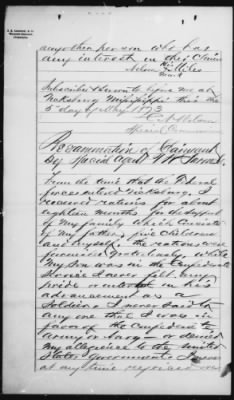 any other person who has
any interest in this claim
Nelson his Miles
mark
Subscribed & sworn to before me at
Vicksburg Mississippi this the
5th day of May 1873
Special Comm
Reexamination of Claimant
By Special Agent
From the time that the Federal
forces entered Vicksburg, I
received rations for about
eighteen months for the support
of my family which consisted
of my father, five children
and myself. the rations were
furnished gratuitously, while
my son was in the Confederate
Service I never felt any
pride or interest in his
advancement as a
Soldier. I never said to
any one that I was in
favor of the Confederate
Army or Navy or denied
my allegiance to the United
States Government. I never
at any time rejoiced over